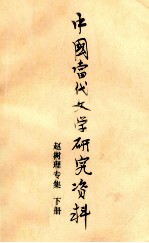 中國當代文学研究资料
赵树理专集 下册